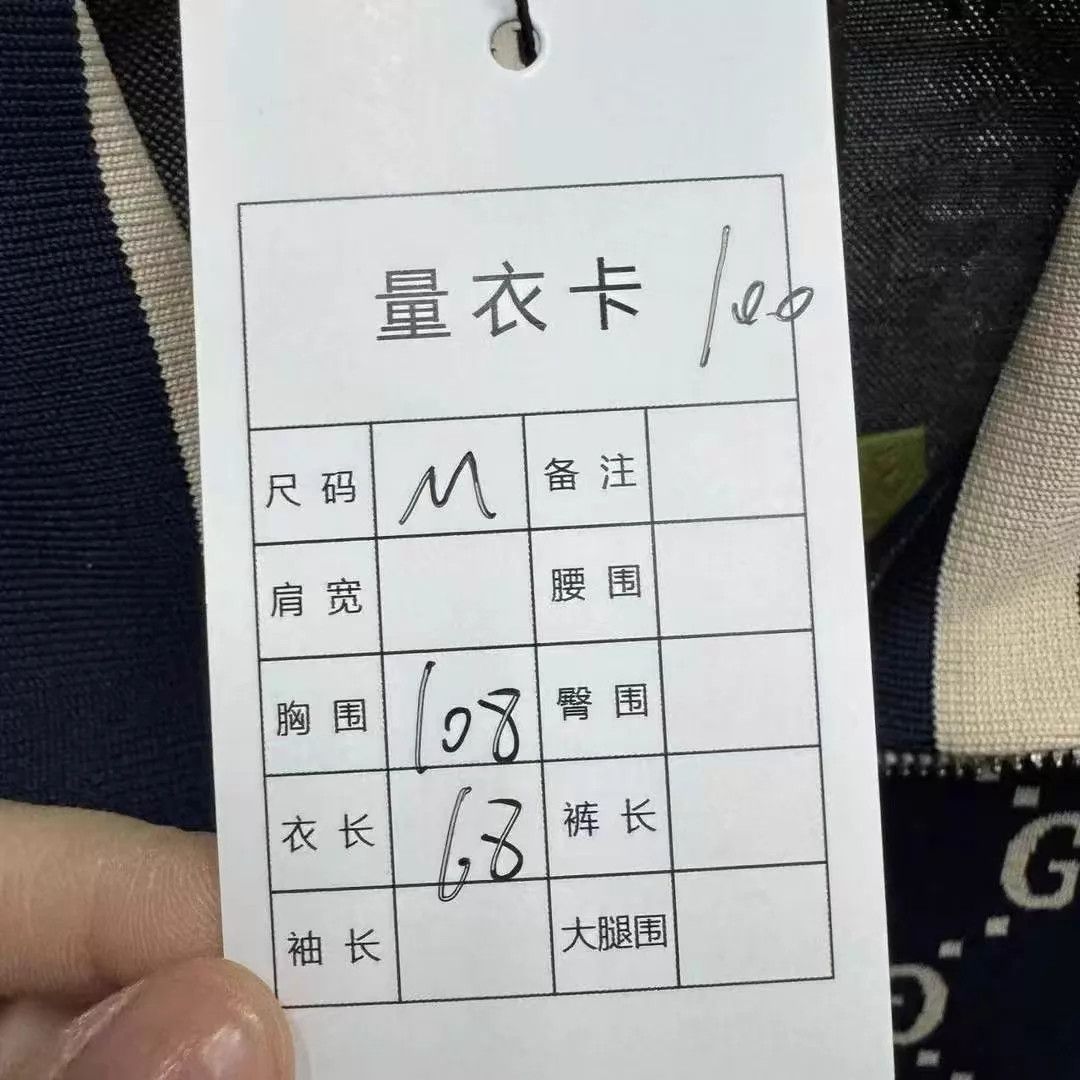 量衣卡 100
尺码 M 备注
肩宽 腰围
胸围 108 臀围
衣长 68 裤长
袖长 大腿围
G